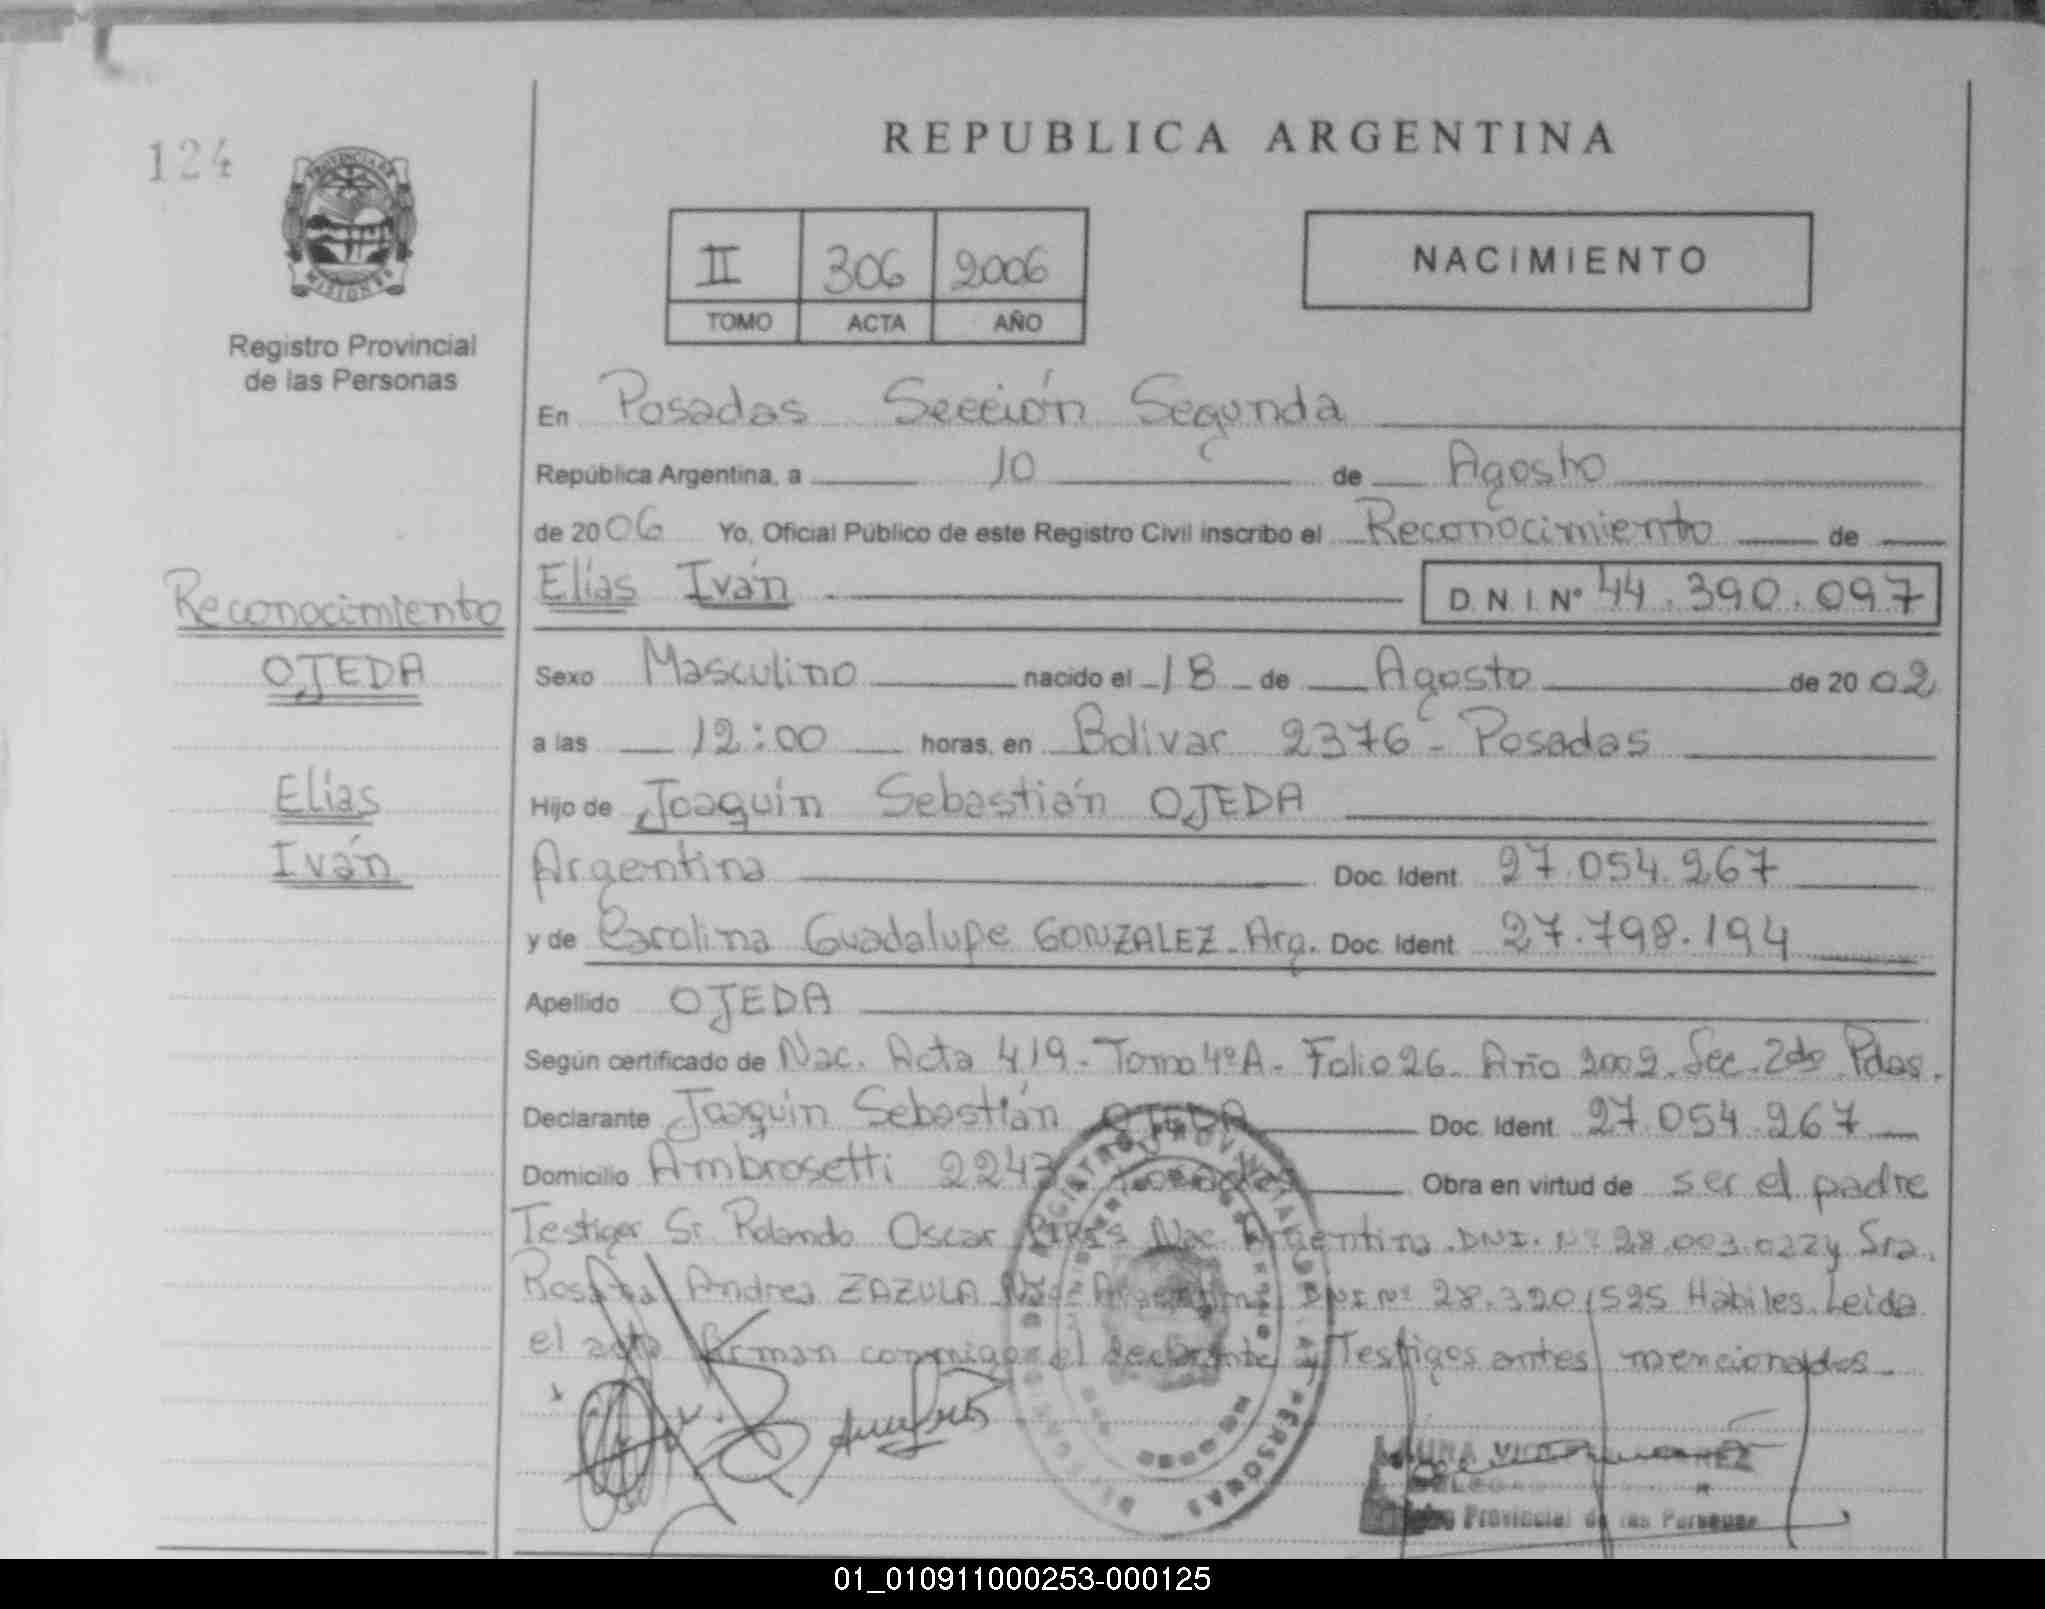 REPUBLICA ARGENTINA
124
PROVINCIA DE
MISIONES
Registro Provincial
de las Personas
II 306 2006
TOMO ACTA AÑO
NACIMIENTO
En Posadas Sección Segunda
República Argentina, a 10 de Agosto
de 2006 Yo, Oficial Público de este Registro Civil inscribo el Reconocimiento de
Elías Iván D.N.I. Nº 44.390.097
Reconocimiento
OJEDA
Elías
Iván
Sexo Masculino nacido el 18 de Agosto de 2002
a las 12:00 horas, en Bolivar 2376 - Posadas
Hijo de Joaquín Sebastián OJEDA
Argentina Doc. Ident. 27.054.267
y de Carolina Guadalupe GONZALEZ - Arg. Doc. Ident. 27.798.194
Apellido OJEDA
Según certificado de Nac. Acta 419 - Tomo 4º A - Folio 26 - Año 2002. Sec. 2do Pdas.
Declarante Joaquín Sebastián OJEDA Doc. Ident. 27.054.267
Domicilio Ambrosetti 2243 Posadas Obra en virtud de ser el padre
Testigos Sr. Rolando Oscar Nac. Argentina. DNI. Nº 28.003.022 y Sra.
Andrea ZAZULA Nac. Argentina DNI Nº 28.320.525 Hábiles. Leida
el acta firman conmigo el declarante y Testigos antes mencionados
REGISTRO PROVINCIAL DE LAS PERSONAS
Provincial de las Personas
01_010911000253-000125